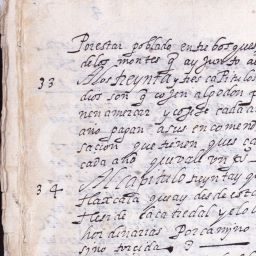 Por estar poblado entre bosques
de los montes q ay junto a
33 A los treynta y tres capitulos
dios son q cojen algodon q
nen amercar y coxese cada a
año pagan a sus encomend
sacion que tienen ques ca
cada año que vale un es
34 Al capitulo treynta y qu
tlaxcala que ay desde esta
tlesi de la catredal y elo
hordinarias Por camyno
sino torcido